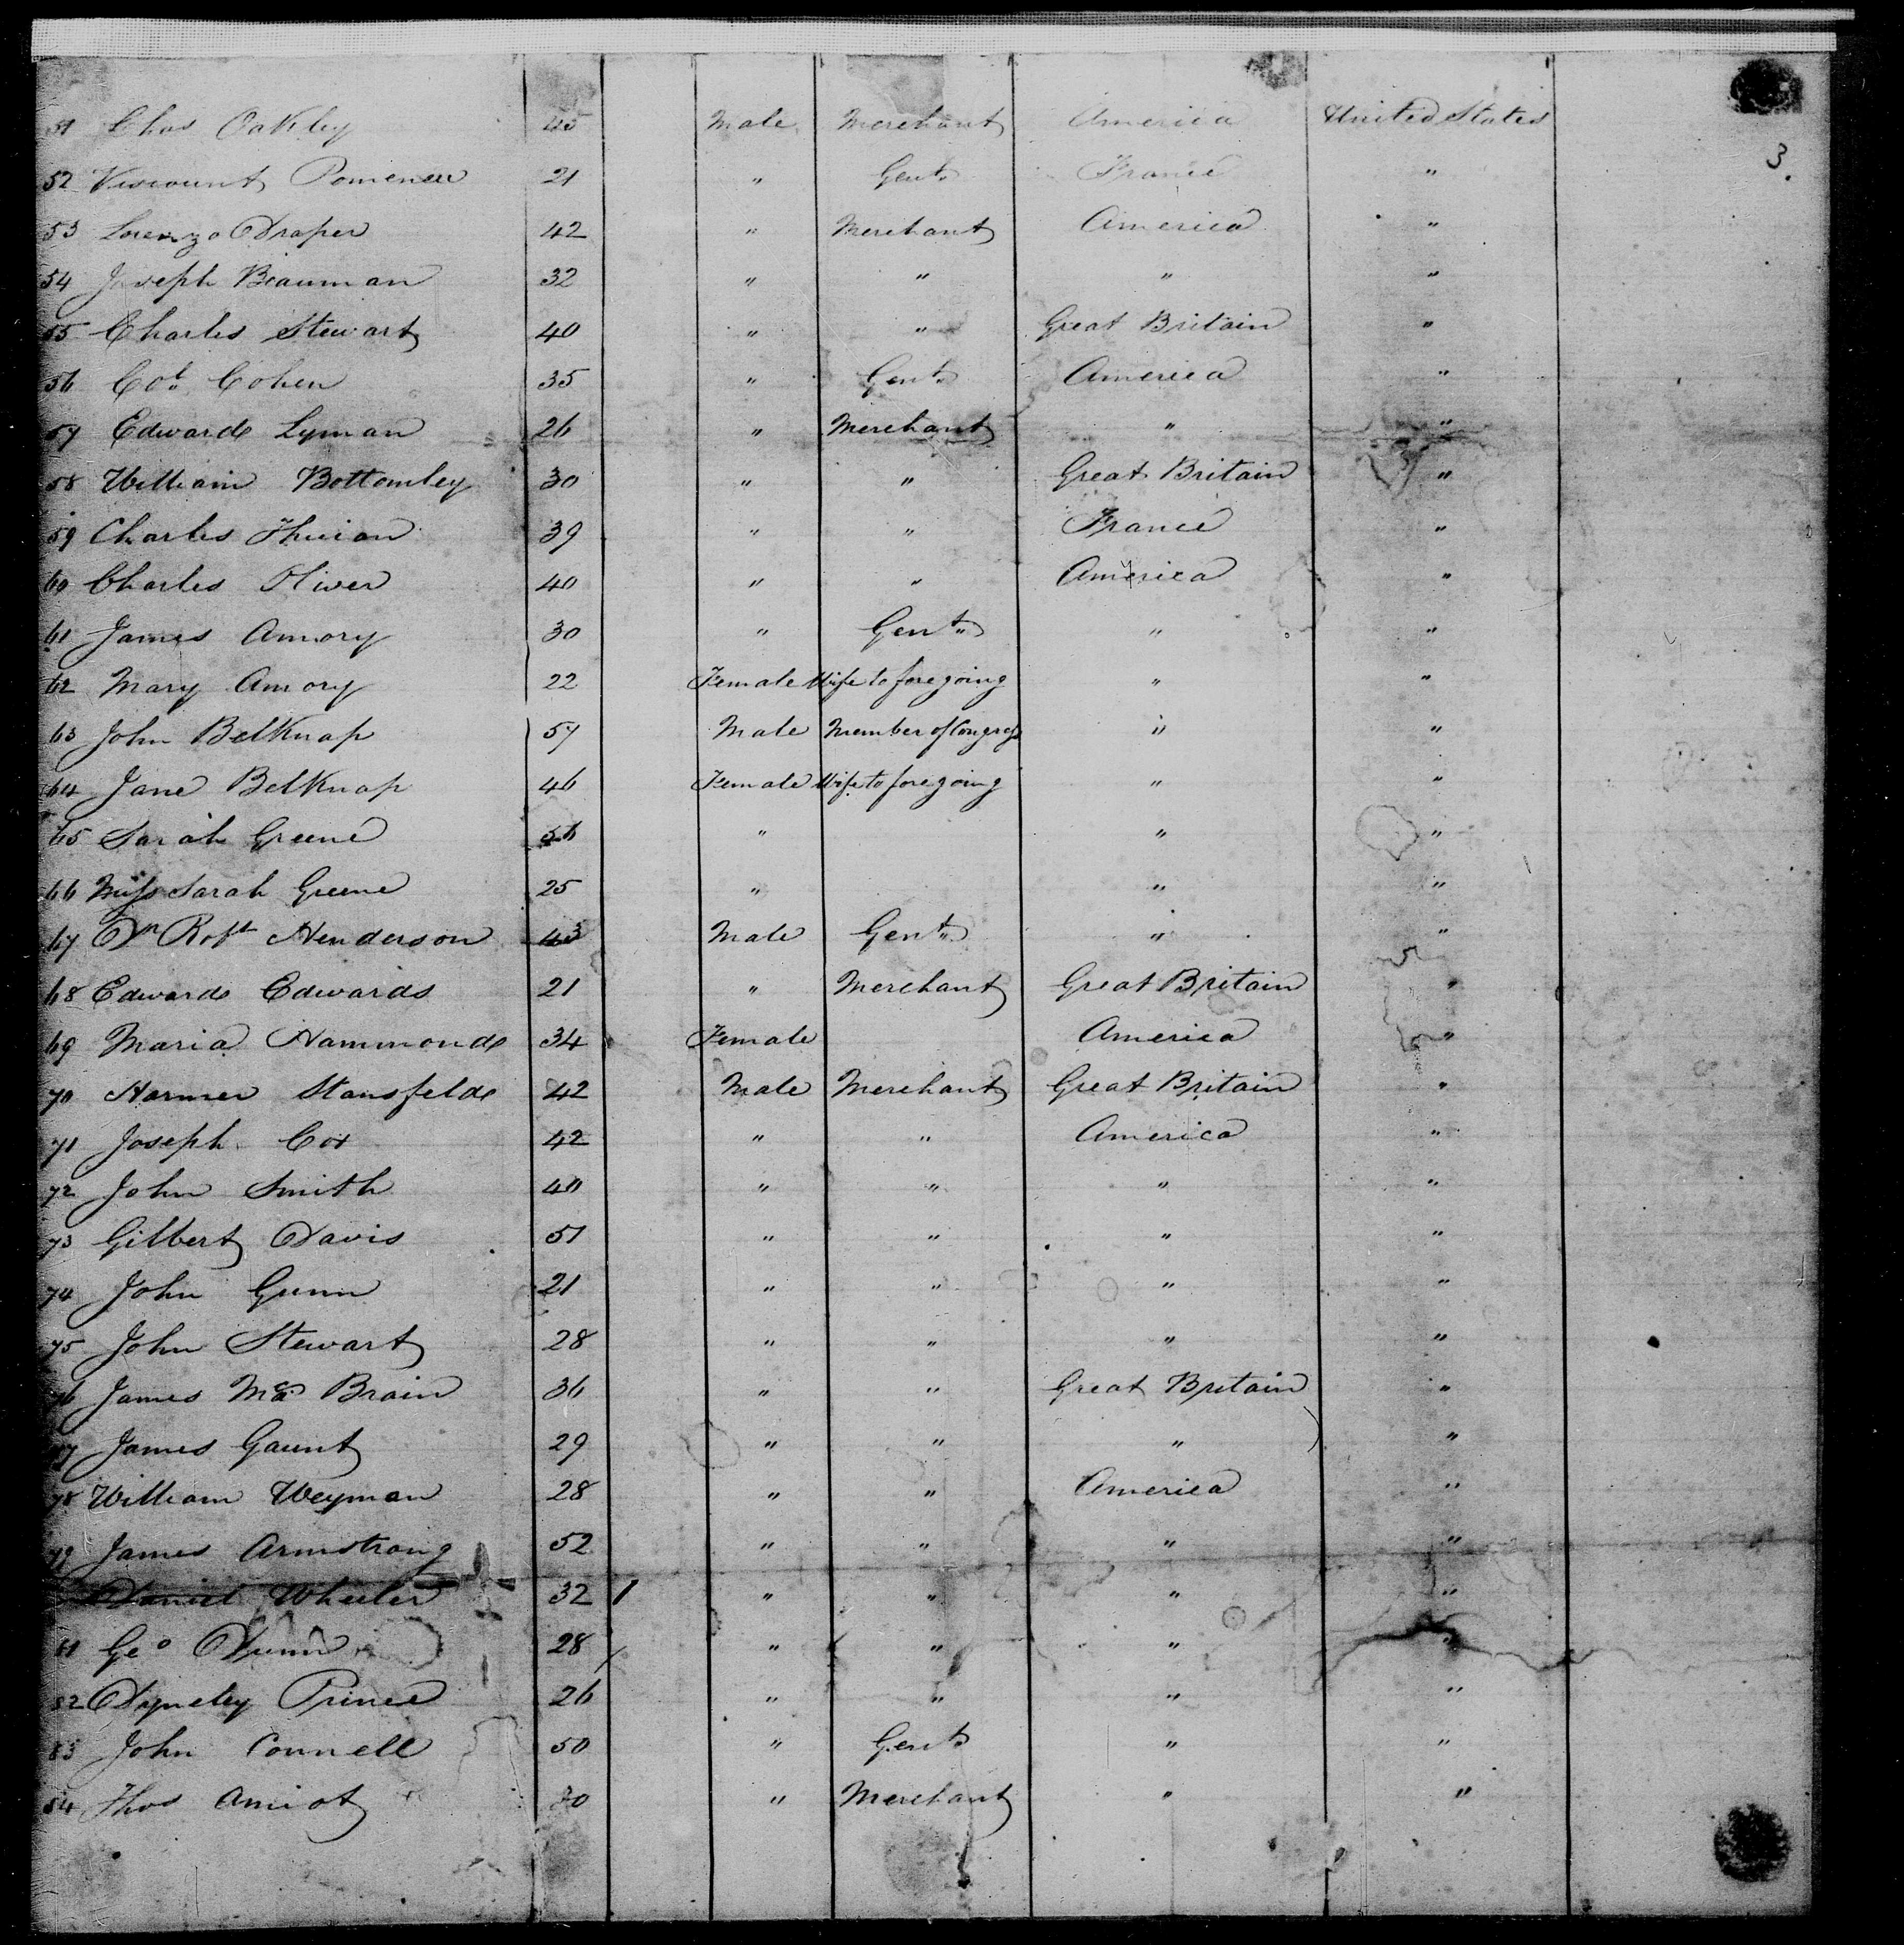 51 Chas Oakley 45 Male Merchant America United States
3.
52 Viscount 21 " Gent. France "
53 Lorenzo Draper 42 " Merchant America "
54 Joseph Beauman 32 " " " "
55 Charles Stewart 40 " " Great Britain "
56 Col. Cohen 35 " Gent. America "
57 Edward Lyman 26 " Merchant " "
58 William Bottomley 30 " " Great Britain "
59 Charles 39 " " France "
60 Charles Oliver 40 " " America "
61 James Amory 30 " Gent. " "
62 Mary Amory 22 Female Wife to foregoing " "
63 John Belknap 57 Male Member of Congress " "
64 Jane Belknap 46 Female Wife to foregoing " "
65 Sarah Greene " " "
66 Miss Sarah Greene 25 " " "
67 Dr Robt Henderson 43 Male Gent. " "
68 Edward Edwards 21 " Merchant Great Britain "
69 Maria Hammond 34 Female America "
70 Harmer Stansfeld 42 Male Merchant Great Britain "
71 Joseph Cox 42 " " America "
72 John Smith 40 " " " "
73 Gilbert Davis 51 " " " "
74 John Gunn 21 " " " "
75 John Stewart 28 " " " "
76 James Brain 36 " " Great Britain "
77 James Gaunt 29 " " " "
78 William Weyman 28 " " America "
79 James Armstrong 52 " " " "
Daniel Wheeler 32 1 " " " "
81 Geo 28 / " " " "
82 Prince 26 " " " "
83 John Connell 50 " Gent. " "
84 Thos Amiot " Merchant " "